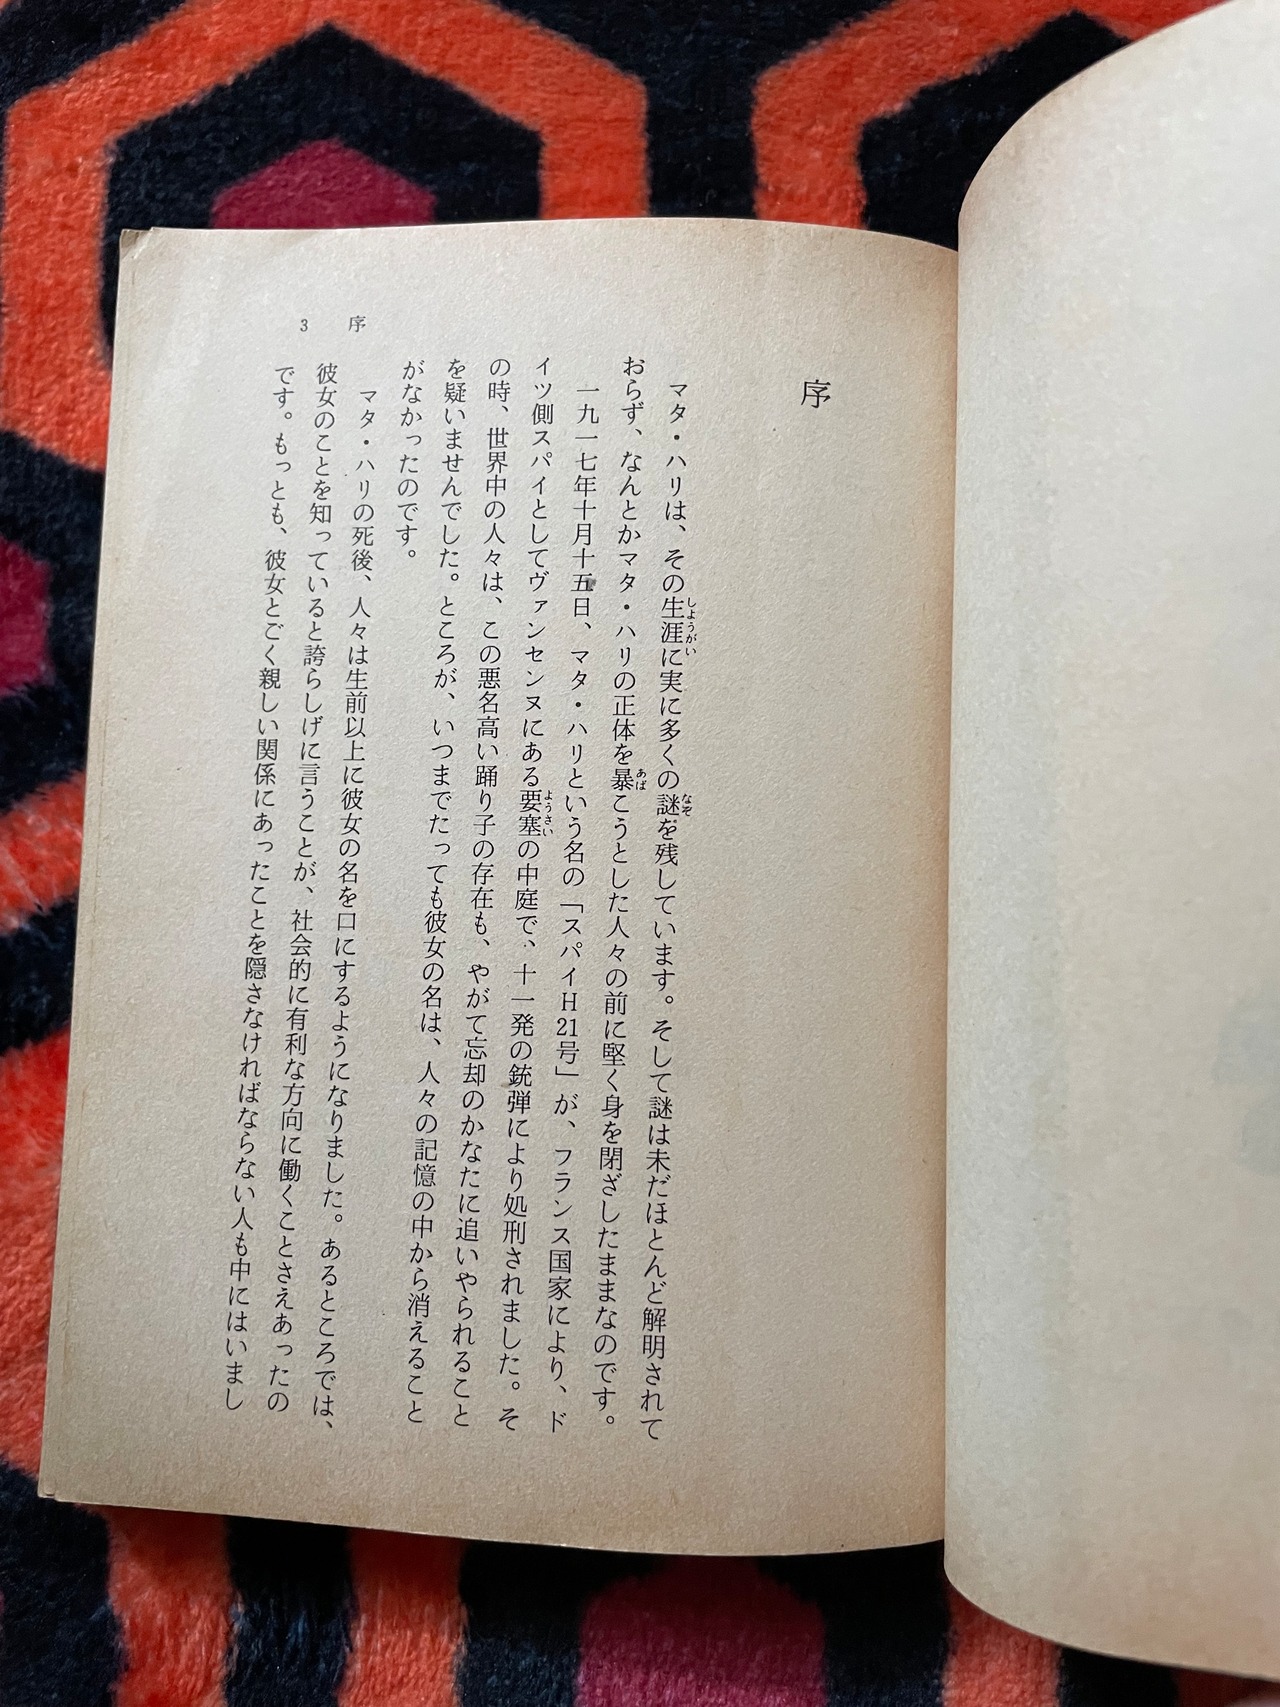 序
マタ・ハリは、その生涯に実に多くの謎を残しています。そして謎は未だほとんど解明されて
しようがい
なぞ
おらず、なんとかマタ・ハリの正体を暴こうとした人々の前に堅く身を閉ざしたままなのです。
あば
一九一七年十月十五日、マタ・ハリという名の「スパイH21号」が、フランス国家により、ド
イツ側スパイとしてヴァンセンヌにある要塞の中庭で、十一発の銃弾により処刑されました。そ
ようさい
の時、世界中の人々は、この悪名高い踊り子の存在も、やがて忘却のかなたに追いやられること
を疑いませんでした。ところが、いつまでたっても彼女の名は、人々の記憶の中から消えること
がなかったのです。
マタ・ハリの死後、人々は生前以上に彼女の名を口にするようになりました。あるところでは、
彼女のことを知っていると誇らしげに言うことが、社会的に有利な方向に働くことさえあったの
です。もっとも、彼女とごく親しい関係にあったことを隠さなければならない人も中にはいまし
3 序